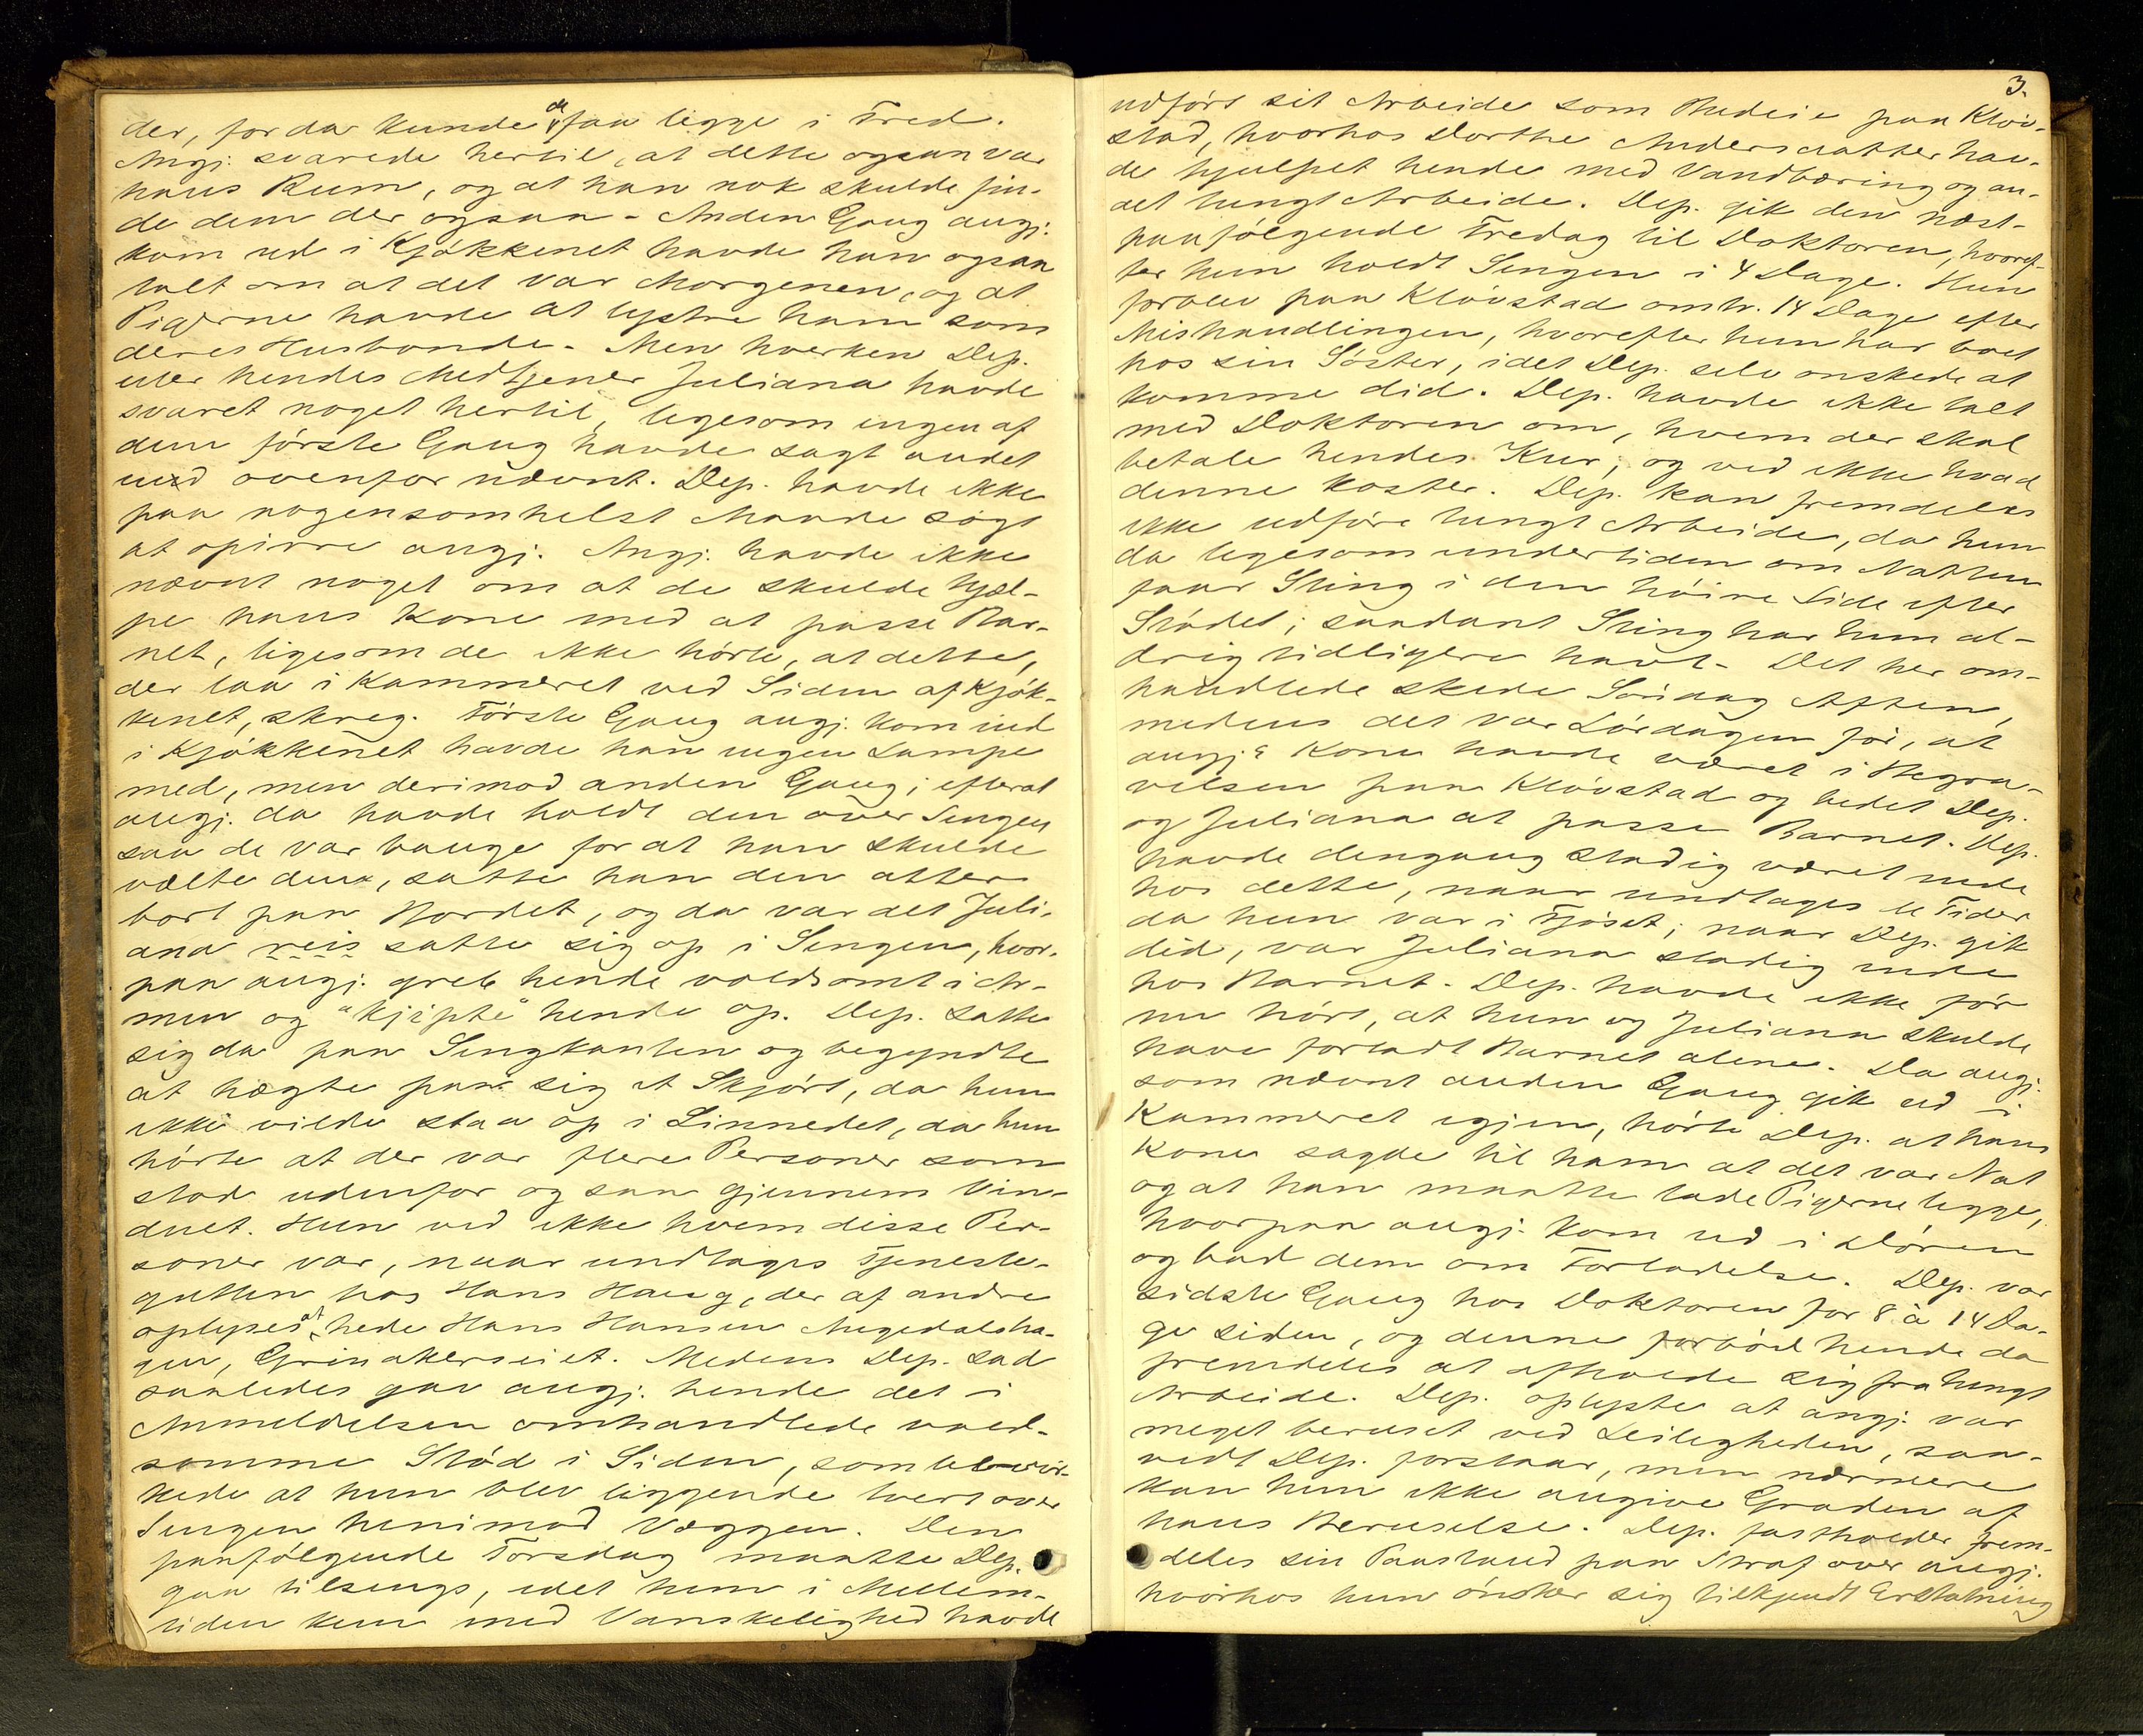 der, for da kunde de faa ligge i Fred.
Angj. svarede hertil, at dette ogsaa var
hans Rum, og at han nok skulde fin-
de dem der ogsaa. Anden Gang angj.
kom ud i Kjøkkenet havde han ogsaa
talt om at det var Morgenen, og at
Pigerne havde at lystre ham som
deres Husbonde. Men hverken Dep.
eller hendes Medtjener Juliana havde
svaret noget hertil, ligesom ingen af
dem første Gang havde sagt andet
end ovenfor nævnt. Dep. havde ikke
paa nogensomhelst Maade søgt
at opirre angj. Angj. havde ikke
nævnt noget om at de skulde hjæl-
pe hans Kone med at passe Bar-
net, ligesom de ikke hørte, at dette,
der laa i Kammeret ved Siden af Kjøk-
kenet, skreg. Første Gang angj. kom ind
i Kjøkkenet havde han ingen Lampe
med, men derimod anden Gang; efterat
angj. da havde holdt den over Sengen
saa de var bange for at han skulde
vælte den, satte han den atter
bort paa Bordet, og da var det Juli-
ana reis satte sig op i Sengen, hvor-
paa angj. greb hende voldsomt i Ar-
men og "kjipte" hende op. Dep. satte
sig da paa Sengkanten og begyndte
at hægte paa sig et Skjørt, da hun
ikke vilde staa op i Linnedet, da hun
hørte at der var flere Personer som
stod udenfor og saa gjennem Vin-
duet. Hun ved ikke hvem disse Per-
soner var, naar undtages Tjeneste-
gutten hos Hans Haug, der af andre
oplyses at hede Hans Hansen Megedalsha-
gen, Grinakerseiet. Medens Dep. sad
saaledes gav angj. hende det i
Anmeldelsen omhandlede vold-
somme Stød i Siden, som bevir-
kede at hun blev liggende tvers over
Sengen henimod Væggen. Den
paafølgende Torsdag maatte Dep.
gaa tilsengs, idet hun i Mellem-
tiden kun med Vanskelighed havde
3.
udført sit Arbeide som Budeie paa Kløv-
stad, hvorhos Dorthe Andersdatter hav-
de hjulpet hende med Vandbæring og an-
det tungt Arbeide. Dep. gik den næst-
paafølgende Fredag til Doktoren, hvoref-
ter hun holdt Sengen i 4 Dage. Hun
forblev paa Kløvstad omtr. 14 Dage efter
Mishandlingen, hvorefter hun har boet
hos sin Søster, idet Dep. selv ønskede at
komme did. Dep. havde ikke talt
med Doktoren om, hvem der skal
betale hendes Kur, og ved ikke hvad
denne koster. Dep. kan fremdeles
ikke udføre tungt Arbeide, da hun
da ligesom undertiden om Natten
faar Sting i den høire Side efter
Stødet; saadant Sting har hun al-
drig tidligere havt. Det her om-
handlede skede Søndag Aften,
medens det var Lørdagen før, at
angj.s Kone havde været i Begra-
velsen paa Kløvstad og bedet Dep.
og Juliana at passe Barnet. Dep.
havde dengang stadig været inde
hos dette, naar undtages de Tider
da hun var i Fjøset; naar Dep. gik
did, var Juliana stadig inde
hos Barnet. Dep. havde ikke før
nu hørt, at hun og Juliana skulde
have forladt Barnet alene. Da angj.
som nævnt anden Gang gik ud i
Kammeret igjen, hørte Dep. at hans
Kone sagde til ham at det var Nat
og at han maatte lade Pigerne ligge,
hvorpaa angj. kom ud i Døren
og bad dem om Forladelse. Dep. var
sidste Gang hos Doktoren for 8 à 14 Da-
ge siden, og denne forbød hende da
fremdeles at afholde sig fra tungt
Arbeide. Dep. oplyste at angj. var
meget beruset ved Leiligheden, saa-
vidt Dep. forstaar, men nærmere
kan hun ikke angive Graden af
hans Beruselse. Dep. fastholder frem-
deles sin Paastand paa Straf over angj.
hvorhos hun ønsker sig tilkjendt Erstatning